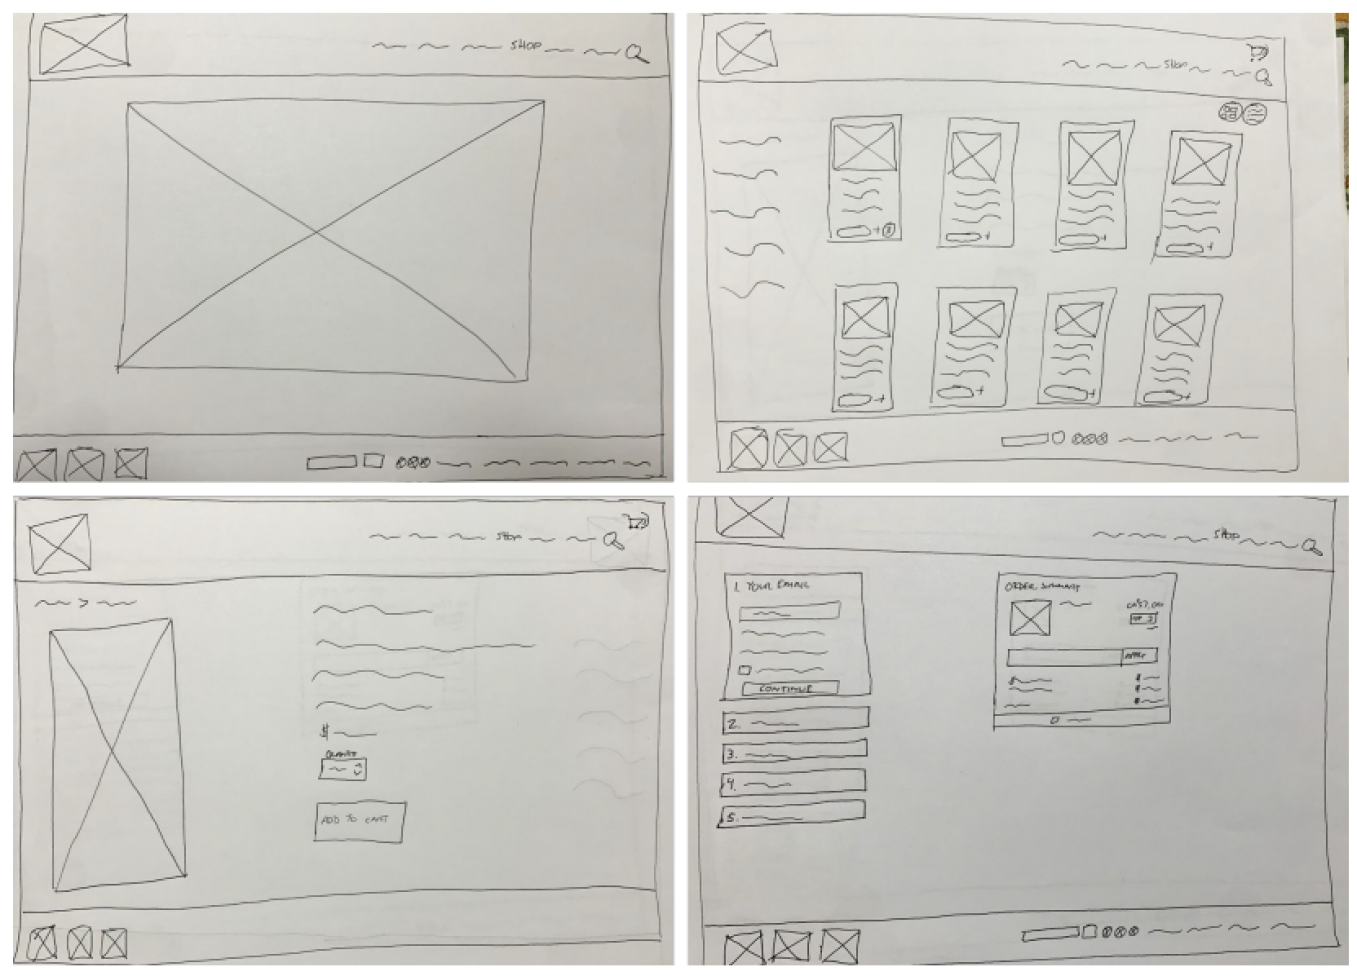 SHOP
Shop
Shop
$
QUANTITY
ADD TO CART
SHOP
1. YOUR EMAIL
CONTINUE
2.
3.
4.
5.
ORDER SUMMARY
APPLY
$
$
$
$